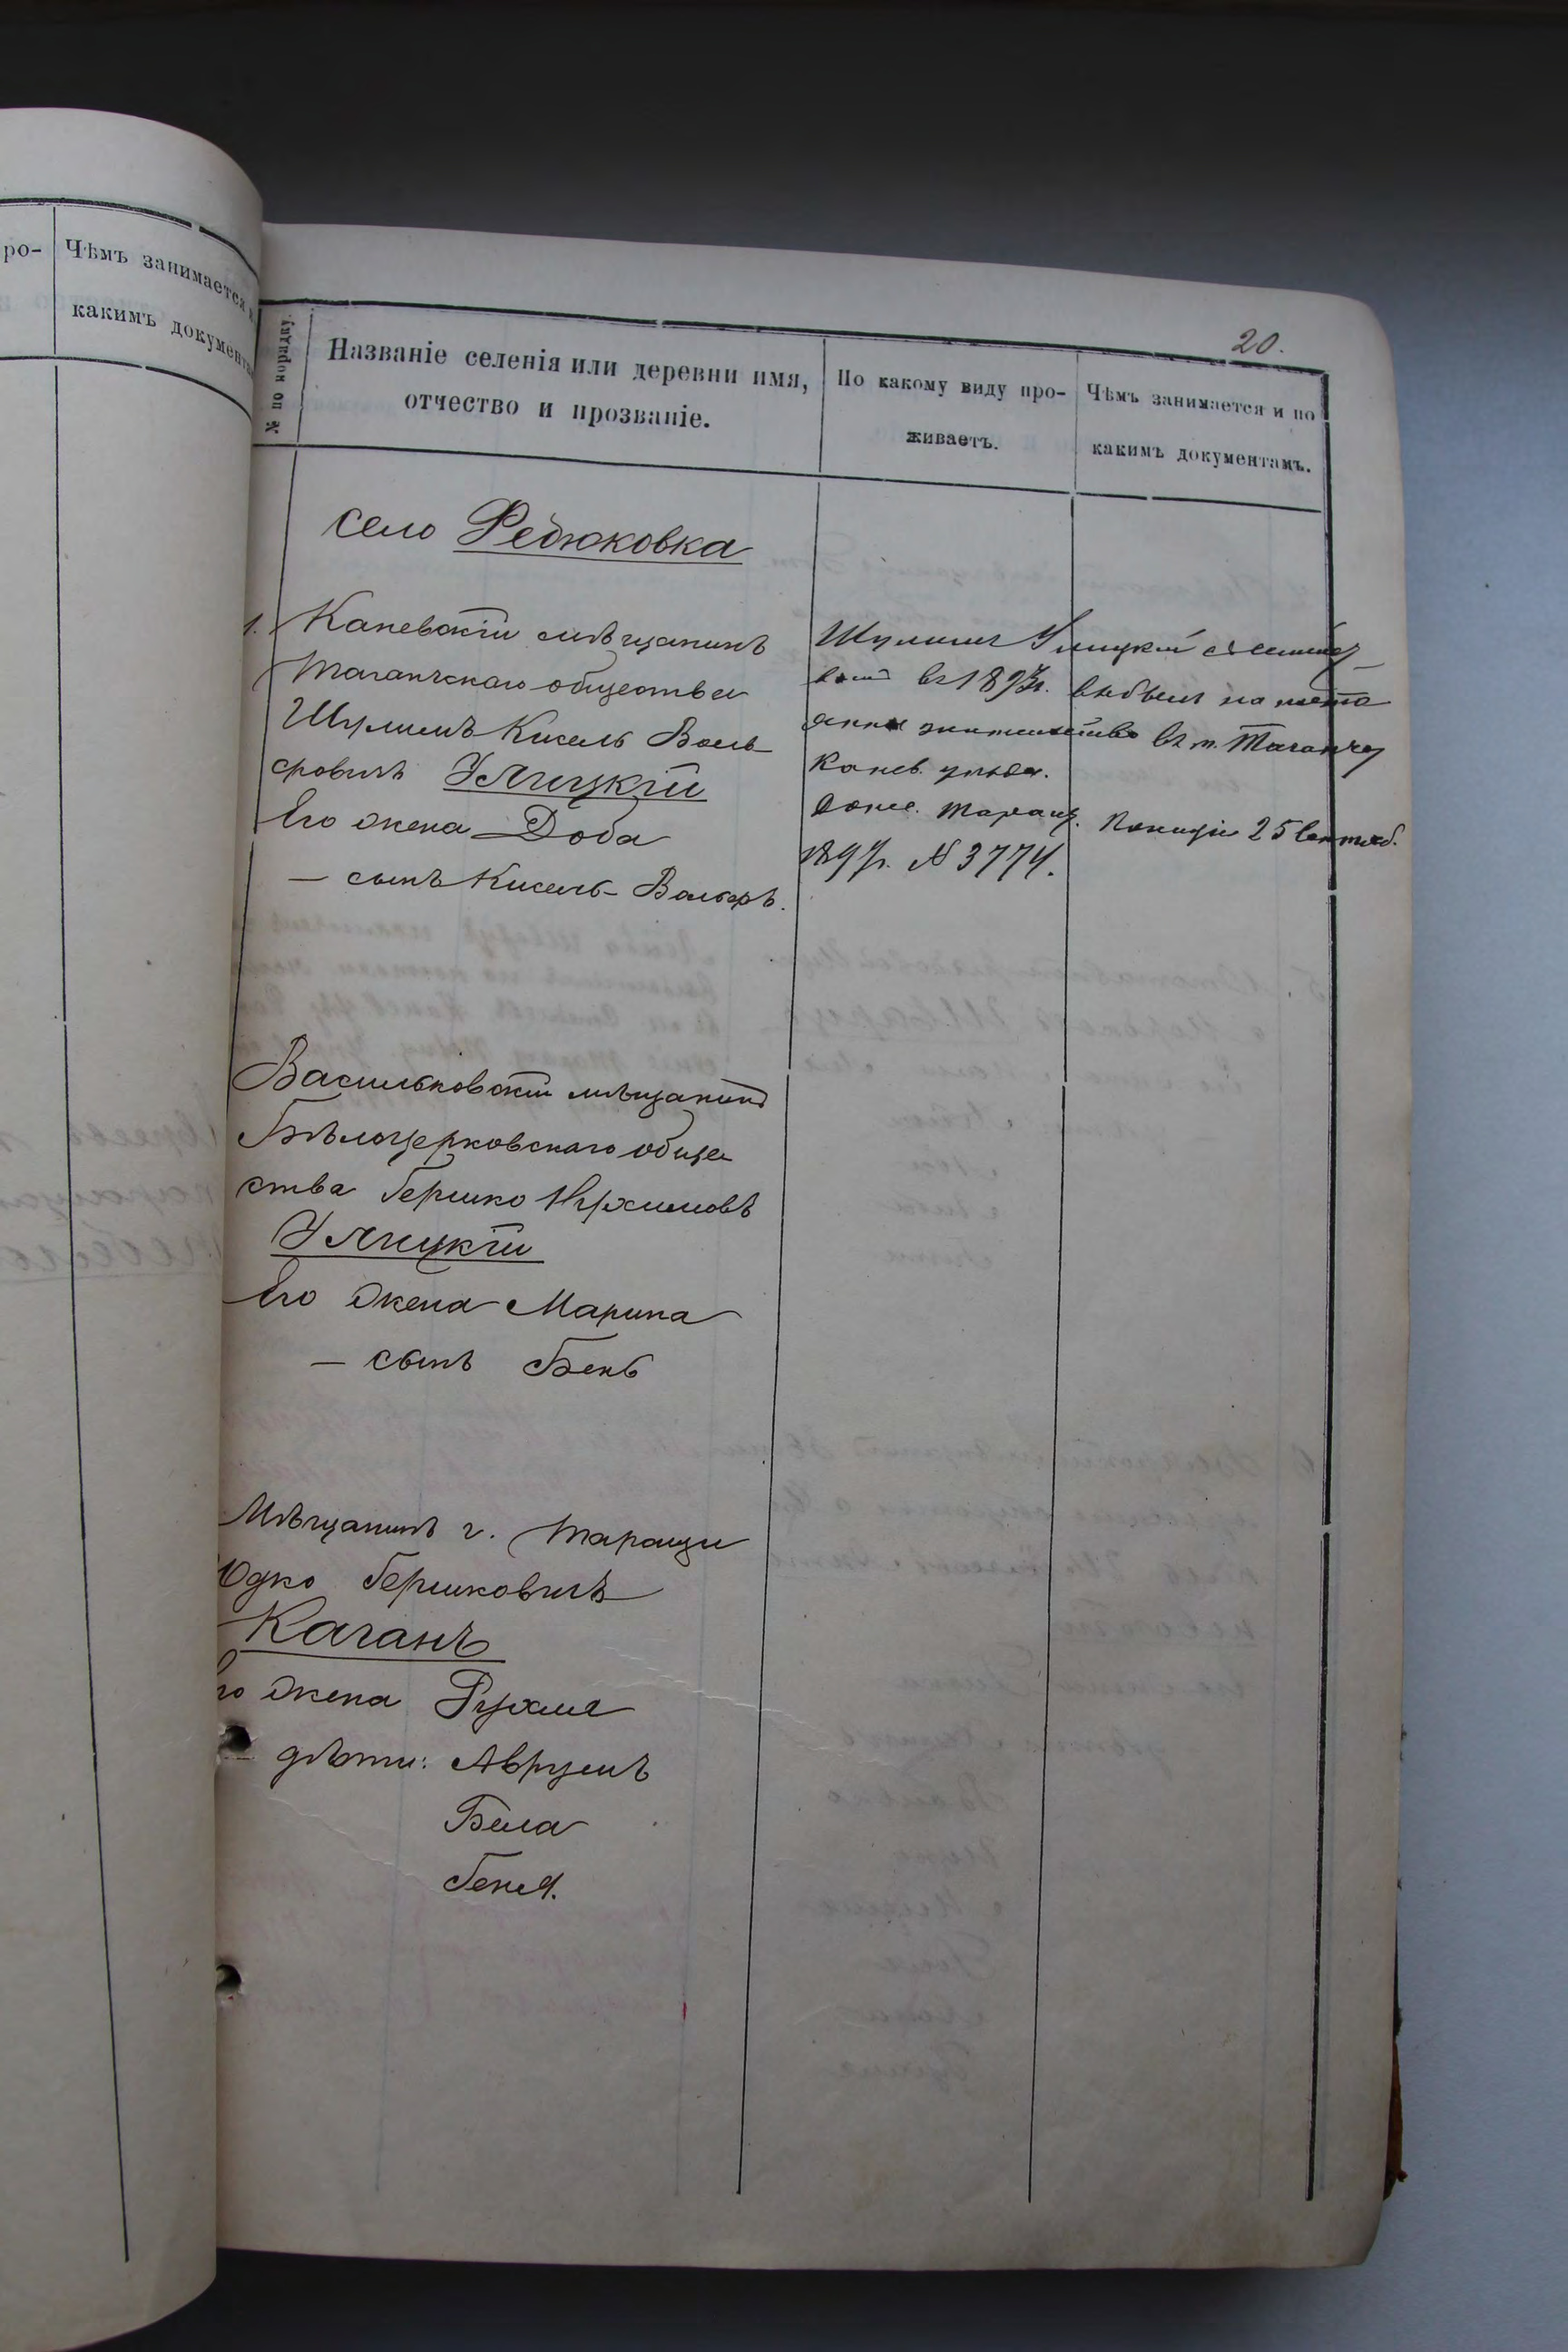 ро-
Чѣмъ занимается и
какимъ документа
20.
№ по порядку
Названіе селенія или деревни имя,
отчество и прозваніе.
По какому виду про-
живаетъ.
Чѣмъ занимается и по
какимъ документамъ.
село Федюковка
1. Каневскій мѣщанинъ
Таганчскаго общества
Шулимъ Кисель Воль
фовичъ Улицкій
Его жена Доба
— сынъ Кисель-Вольфъ.
Шулимъ Улицкій съ семей
въ 1897г. выбылъ на посто
янное жительство въ м. Таганчу
Канев. уѣзда.
Донес. Таращ. Полиціи 25 Сентяб.
1897г. № 3774.
Васильковскій мѣщанинъ
Бѣлоцерковскаго обще
ства Гершко Нухимовъ
Улицкій
Его жена Марина
— сынъ Бенъ
Мѣщанинъ г. Таращи
Юдко Гершковичъ
Каганъ
го жена Рухля
— дѣти: Аврумъ
Бела
Геня.